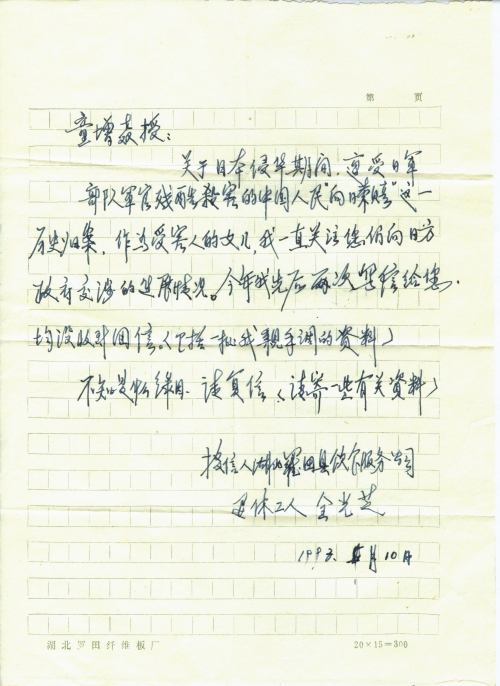 第 页
童增教授：
关于日本侵华期间，遭受日军
部队军官残酷殺害的中国人民"向日索赔"这一
历史归案，作为受害人的女儿，我一直关注您们向日方
政府交涉的进展情况。今年我先后两次写信给您，
均没收到回信。（包括一批我親手调的资料）
不知是何缘因，请复信（请寄一些有关资料）
投信人湖北罗田县饮食服务公司
退休工人 全光芝
1993. 月10日
湖北罗田纤维板厂 20×15=300